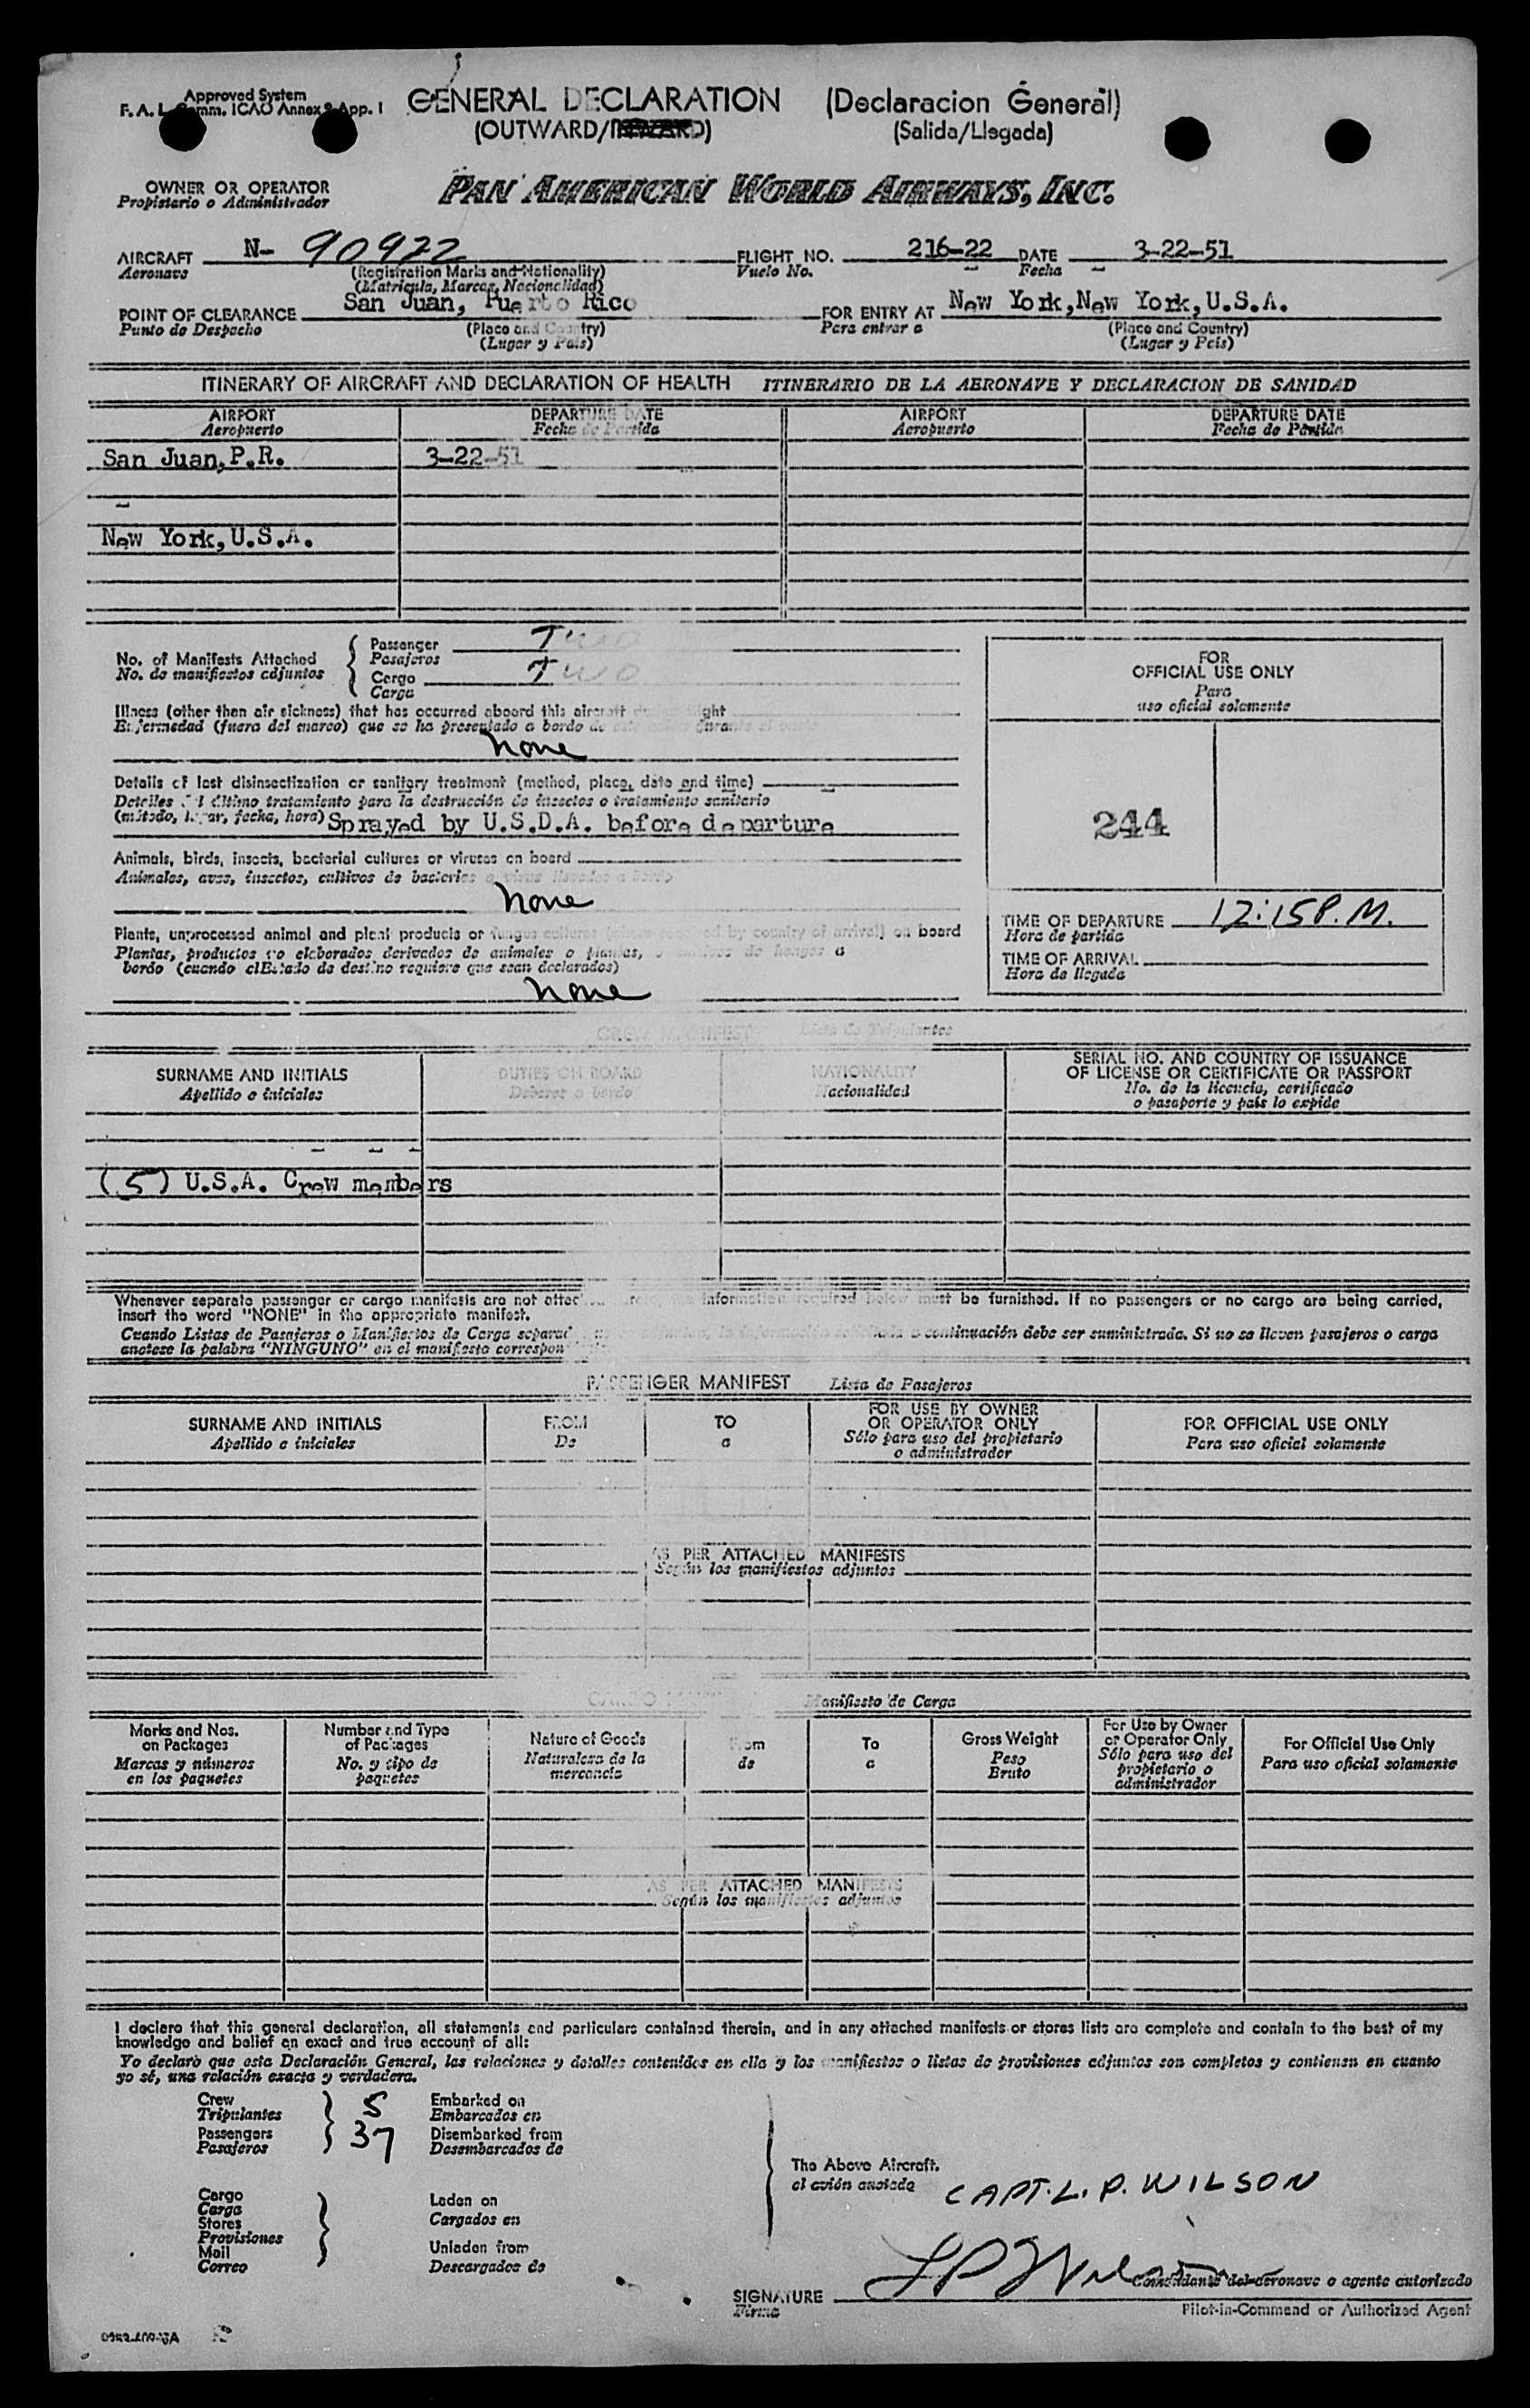 Approved System
F. A. L. Comm. ICAO Annex 9 App. I
GENERAL DECLARATION (Declaracion General)
(OUTWARD/ ) (Salida/Llegada)
OWNER OR OPERATOR
Propietario o Administrador
PAN AMERICAN WORLD AIRWAYS, INC.
AIRCRAFT N- 90922 FLIGHT NO. 216-22 DATE 3-22-51
Aeronave (Registration Marks and Nationality) Vuelo No. Fecha
(Matricula, Marcas, Nacionalidad)
POINT OF CLEARANCE San Juan, Puerto Rico FOR ENTRY AT New York, New York, U.S.A.
Punto de Despacho (Place and Country) Para entrar a (Place and Country)
(Lugar y País) (Lugar y País)
ITINERARY OF AIRCRAFT AND DECLARATION OF HEALTH ITINERARIO DE LA AERONAVE Y DECLARACION DE SANIDAD
AIRPORT DEPARTURE DATE AIRPORT DEPARTURE DATE
Aeropuerto Fecha de Partida Aeropuerto Fecha de Partida
San Juan, P.R. 3-22-51
New York, U.S.A.
No. of Manifests Attached
No. de manifiestos adjuntos
Passenger Two
Pasajeros
Cargo Two
Carga
FOR
OFFICIAL USE ONLY
Para
uso oficial solamente
Illness (other than air sickness) that has occurred aboard this aircraft during flight
Enfermedad (fuera del mareo) que se ha presentado a bordo de durante el
None
Details of last disinsectization or sanitary treatment (method, place, date and time)
Detalles del último tratamiento para la destrucción de insectos o tratamiento sanitario
(método, lugar, fecha, hora) Sprayed by U.S.D.A. before departure
244
Animals, birds, insects, bacterial cultures or viruses on board
Animales, aves, insectos, cultivos de bacterias o virus llevados a bordo
None
Plants, unprocessed animal and plant products or fungus cultures by country of arrival) on board
Plantas, productos no elaborados derivados de animales o plantas, de hongos a
bordo (cuando el Estado de destino requiere que sean declarados)
None
TIME OF DEPARTURE 12:15 P.M.
Hora de partida
TIME OF ARRIVAL
Hora de llegada
CREW MANIFEST Lista de Tripulantes
SURNAME AND INITIALS DUTIES ON BOARD NATIONALITY SERIAL NO. AND COUNTRY OF ISSUANCE
OF LICENSE OR CERTIFICATE OR PASSPORT
Apellido e iniciales Deberes a bordo Nacionalidad No. de la licencia, certificado
o pasaporte y país lo expide
(5) U.S.A. Crew members
Whenever separate passenger or cargo manifests are not attached information required below must be furnished. If no passengers or no cargo are being carried,
insert the word "NONE" in the appropriate manifest.
Cuando Listas de Pasajeros o Manifiestos de Carga separad la a continuación debe ser suministrada. Si no se lleven pasajeros o carga
anotese la palabra "NINGUNO" en el manifiesto correspon
PASSENGER MANIFEST Lista de Pasajeros
SURNAME AND INITIALS FROM TO FOR USE BY OWNER
OR OPERATOR ONLY FOR OFFICIAL USE ONLY
Apellido e iniciales De a Sólo para uso del propietario
o administrador Para uso oficial solamente
AS PER ATTACHED MANIFESTS
Según los manifiestos adjuntos
CARGO Manifiesto de Carga
Marks and Nos.
on Packages
Marcas y números
en los paquetes
Number and Type
of Packages
No. y tipo de
paquetes
Nature of Goods
Naturaleza de la
mercancía
From
de
To
a
Gross Weight
Peso
Bruto
For Use by Owner
or Operator Only
Sólo para uso del
propietario o
administrador
For Official Use Only
Para uso oficial solamente
AS PER ATTACHED MANIFESTS
Según los manifiestos adjuntos
I declare that this general declaration, all statements and particulars contained therein, and in any attached manifests or stores lists are complete and contain to the best of my
knowledge and belief an exact and true account of all:
Yo declaro que esta Declaración General, las relaciones y detalles contenidos en ella y los manifiestos o listas de provisiones adjuntos son completos y contienen en cuanto
yo sé, una relación exacta y verdadera.
Crew 5 Embarked on
Tripulantes Embarcados en
Passengers 37 Disembarked from
Pasajeros Desembarcados de
The Above Aircraft.
el avión anotado
CAPT. L. P. WILSON
Cargo
Carga
Stores
Provisiones
Mail
Correo
Laden on
Cargados en
Unladen from
Descargados de
SIGNATURE LP Wilson
Firma
Comandante del aeronave o agente autorizado
Pilot-in-Command or Authorized Agent